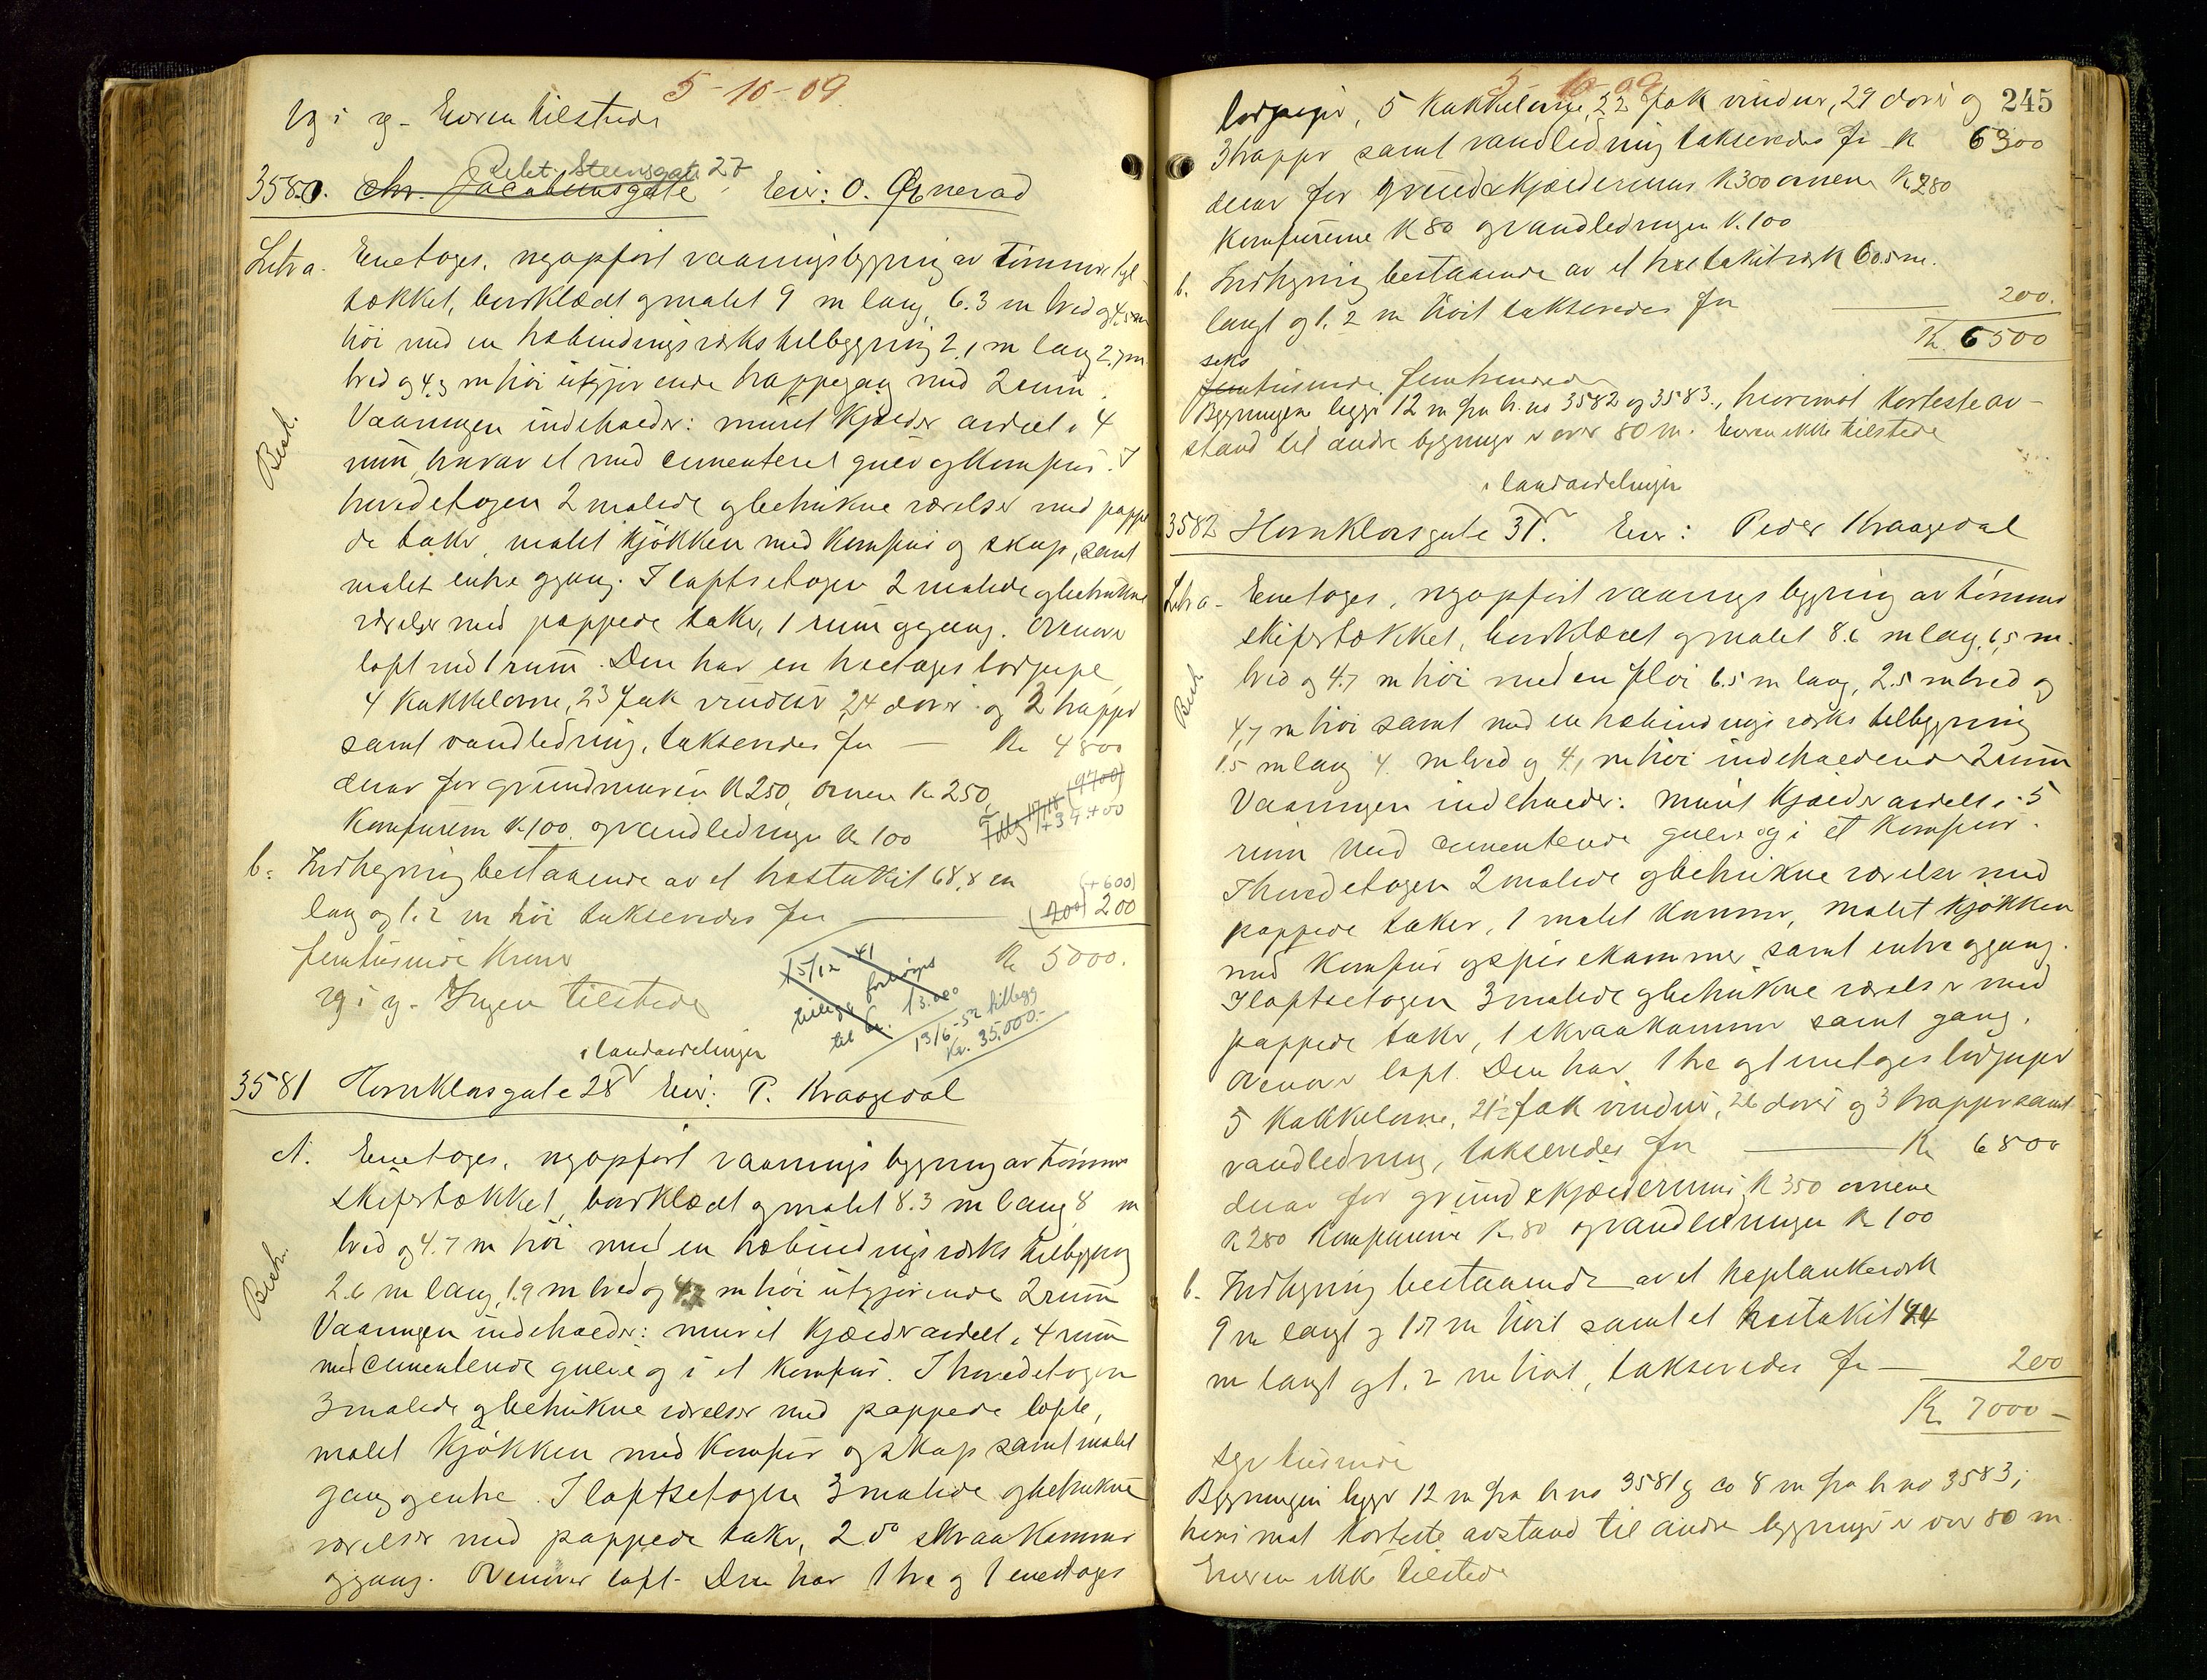 5-10-09
Eieren tilstede
Rekt. Steensgate 27
3580. Chr. Jacobsensgate Eier: O. Ognerød
Litr a. Enetages, nyopført vaaningsbygning av tømmer tegl-
tækket, bordklædt og malet 9 m lang, 6.3 m bred og 4.5 m
høi med en træbindingsverks tilbygning 2.1 m lang 2.7 m
bred og 4.3 m høi utgjørende trappegang med 2 rum.
Vaaningen indeholder: muret kjælder avdelt i 4
rum, hvorav et med cementeret gulv og komfur. I
hovedetagen 2 malede og betrukne værelser med pappe-
de taker, malet kjøkken med komfur og skap, samt
malet entre og gang. I loftsetagen 2 malede og betrukne
værelser med pappede taker, 1 rum og gang. Ovenover
loft med 1 rum. Den har en treetages brandpipe,
4 kakkelovne, 23 fak vinduer 24 dører og 2 trapper
samt vandledning, takseredes for — Kr 4800
derav for grundmuren K 250, ovnen Kr 250,
Komfuren K 100 og vandledningen Kr 100
(9700)
+ 34400
b. Indhegning bestaaende av et træstakit 68.8 m
lang og 1.2 m høi takseredes for —
(+600)
(200) 200
femtusinde Kroner Kr 5000.
Ingen tilstede
15/12 -41
forhøiet
til kr. 13.000
19/6-52 tillegg
Kr. 35.000.-
i landavdelingen
3581 Hornklovsgate 28 Eier: P. Kraagedal
Besk.
A. Enetages, nyopført vaanings bygning av tømmer
skifertækket, bordklædt og malet 8.3 m lang 8 m
bred og 4.7 m høi med en træbindingsverks tilbygning
2.6 m lang, 1.9 m bred og 4.7 m høi utgjørende 2 rum
Vaaningen indeholder: muret kjælder avdelt i 4 rum
med cementerede gulve og i et komfur. I hovedetagen
3 malede og betrukne værelser med pappede lofte,
malet kjøkken med komfur og skap samt malet
gang og entre. I loftsetagen 3 malede og betrukne
værelser med pappede taker, 2 do skraakammer
og gang. Ovenover loft. Den har 1 tre og 1 enetages
5-10-09
245
5 kakkelovne, 22 fak vinduer, 29 dører og
3 trapper samt vandledning takseredes for K 6300
derav for grund & kjælderrums K 300 ovnene K 280
Komfurene K 80 og vandledningen K. 100
b. Indhegning bestaaende av et træstakitverk 60.5 m.
langt og 1.2 m høit takseredes for — 200.
Kr. 6500
seks
femtusinde femhundrede
Bygningen ligger 12 m fra br. no 3582 og 3583, hvorimot korteste av-
stand til andre bygninger er over 80 m. Eieren ikke tilstede
i landavdelingen
3582 Hornklovsgate 31. Eier: Peder Kraagedal
Besk.
Litr a. Enetages, nyopført vaanings bygning av tømmer
skifertækket, bordklædt og malet 8.6 m lang, 6.5 m.
bred og 4.7 m høi med en fløi 6.5 m lang, 2.5 m bred og
4.7 m høi samt med en træbindingsverks tilbygning
1.5 m lang 4. m bred og 4.1 m høi indeholdende 2 rum
Vaaningen indeholder: muret kjælder avdelt i 5
rum med cementerede gulve og i et komfur.
I hovedetagen 2 malede og betrukne værelser med
pappede taker, 1 malet kammer, malet kjøkken
med komfur og spisekammer samt entre og gang.
I loftsetagen 3 malede og betrukne værelser med
pappede taker, 1 skraakammer samt gang.
Ovenover loft. Den har 1 tre og 1 enetages
5 kakkelovne, 21 fak vinduer, 26 dører og 3 trapper samt
vandledning, takseredes for — Kr 6800
derav for grund & kjælderrums K 350 ovnene
K 280 komfurene K 80 og vandledningen Kr 100
b. Indhegning bestaaende av et træplankeverk
9 m langt og 1.7 m høit samt et træstakit 44
m langt og 1.2 m høit, takseredes for — 200
Kr. 7000 —
syv tusinde
Bygningen ligger 12 m fra br no 3581 og ca 8 m fra br no 3583;
hvorimot korteste avstand til andre bygninger er over 80 m.
Eieren ikke tilstede